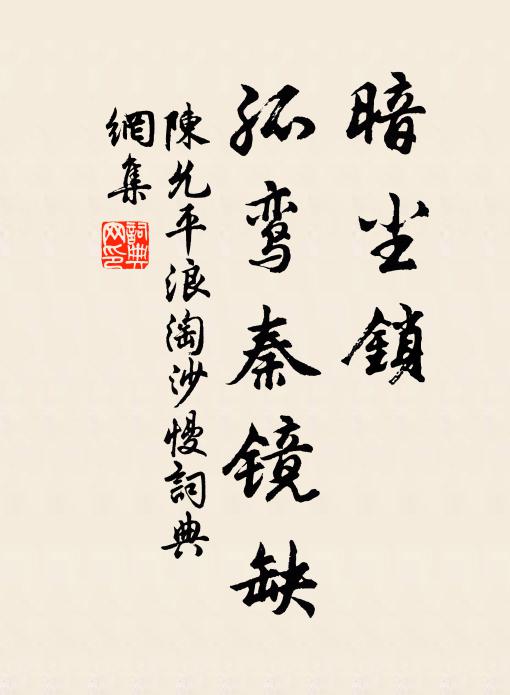 暗尘鎖
孤鸾秦镜缺
陳允平浪淘沙慢詞典
網集
詞典网印